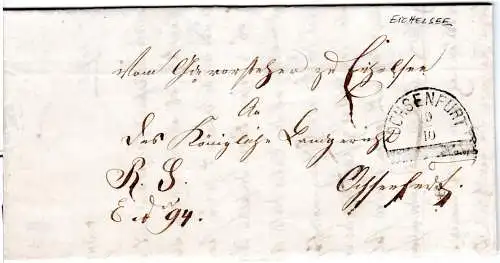 EICHELSEE
Vom Gdevorsteher zu Eichelsee
An
das Königliche Landgericht
R. S.
Ochsenfurt
E. N. 94.
OCHSENFURT
9
10